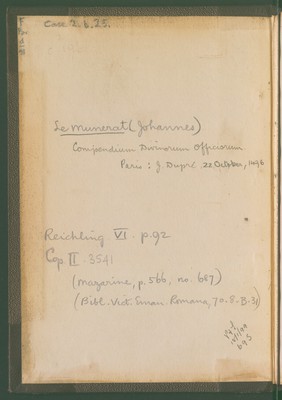 Case 2.b.25.
Le Munerat (Johannes)
Compendium Divinorum Officiorum
Paris: J. Dupré 22 October, 1496
Reichling VI. p.92
Cop II. 3541
(Mazarine, p. 566, no. 687)
(Bibl. Vict. Eman. Romana, 70.8.B.31)